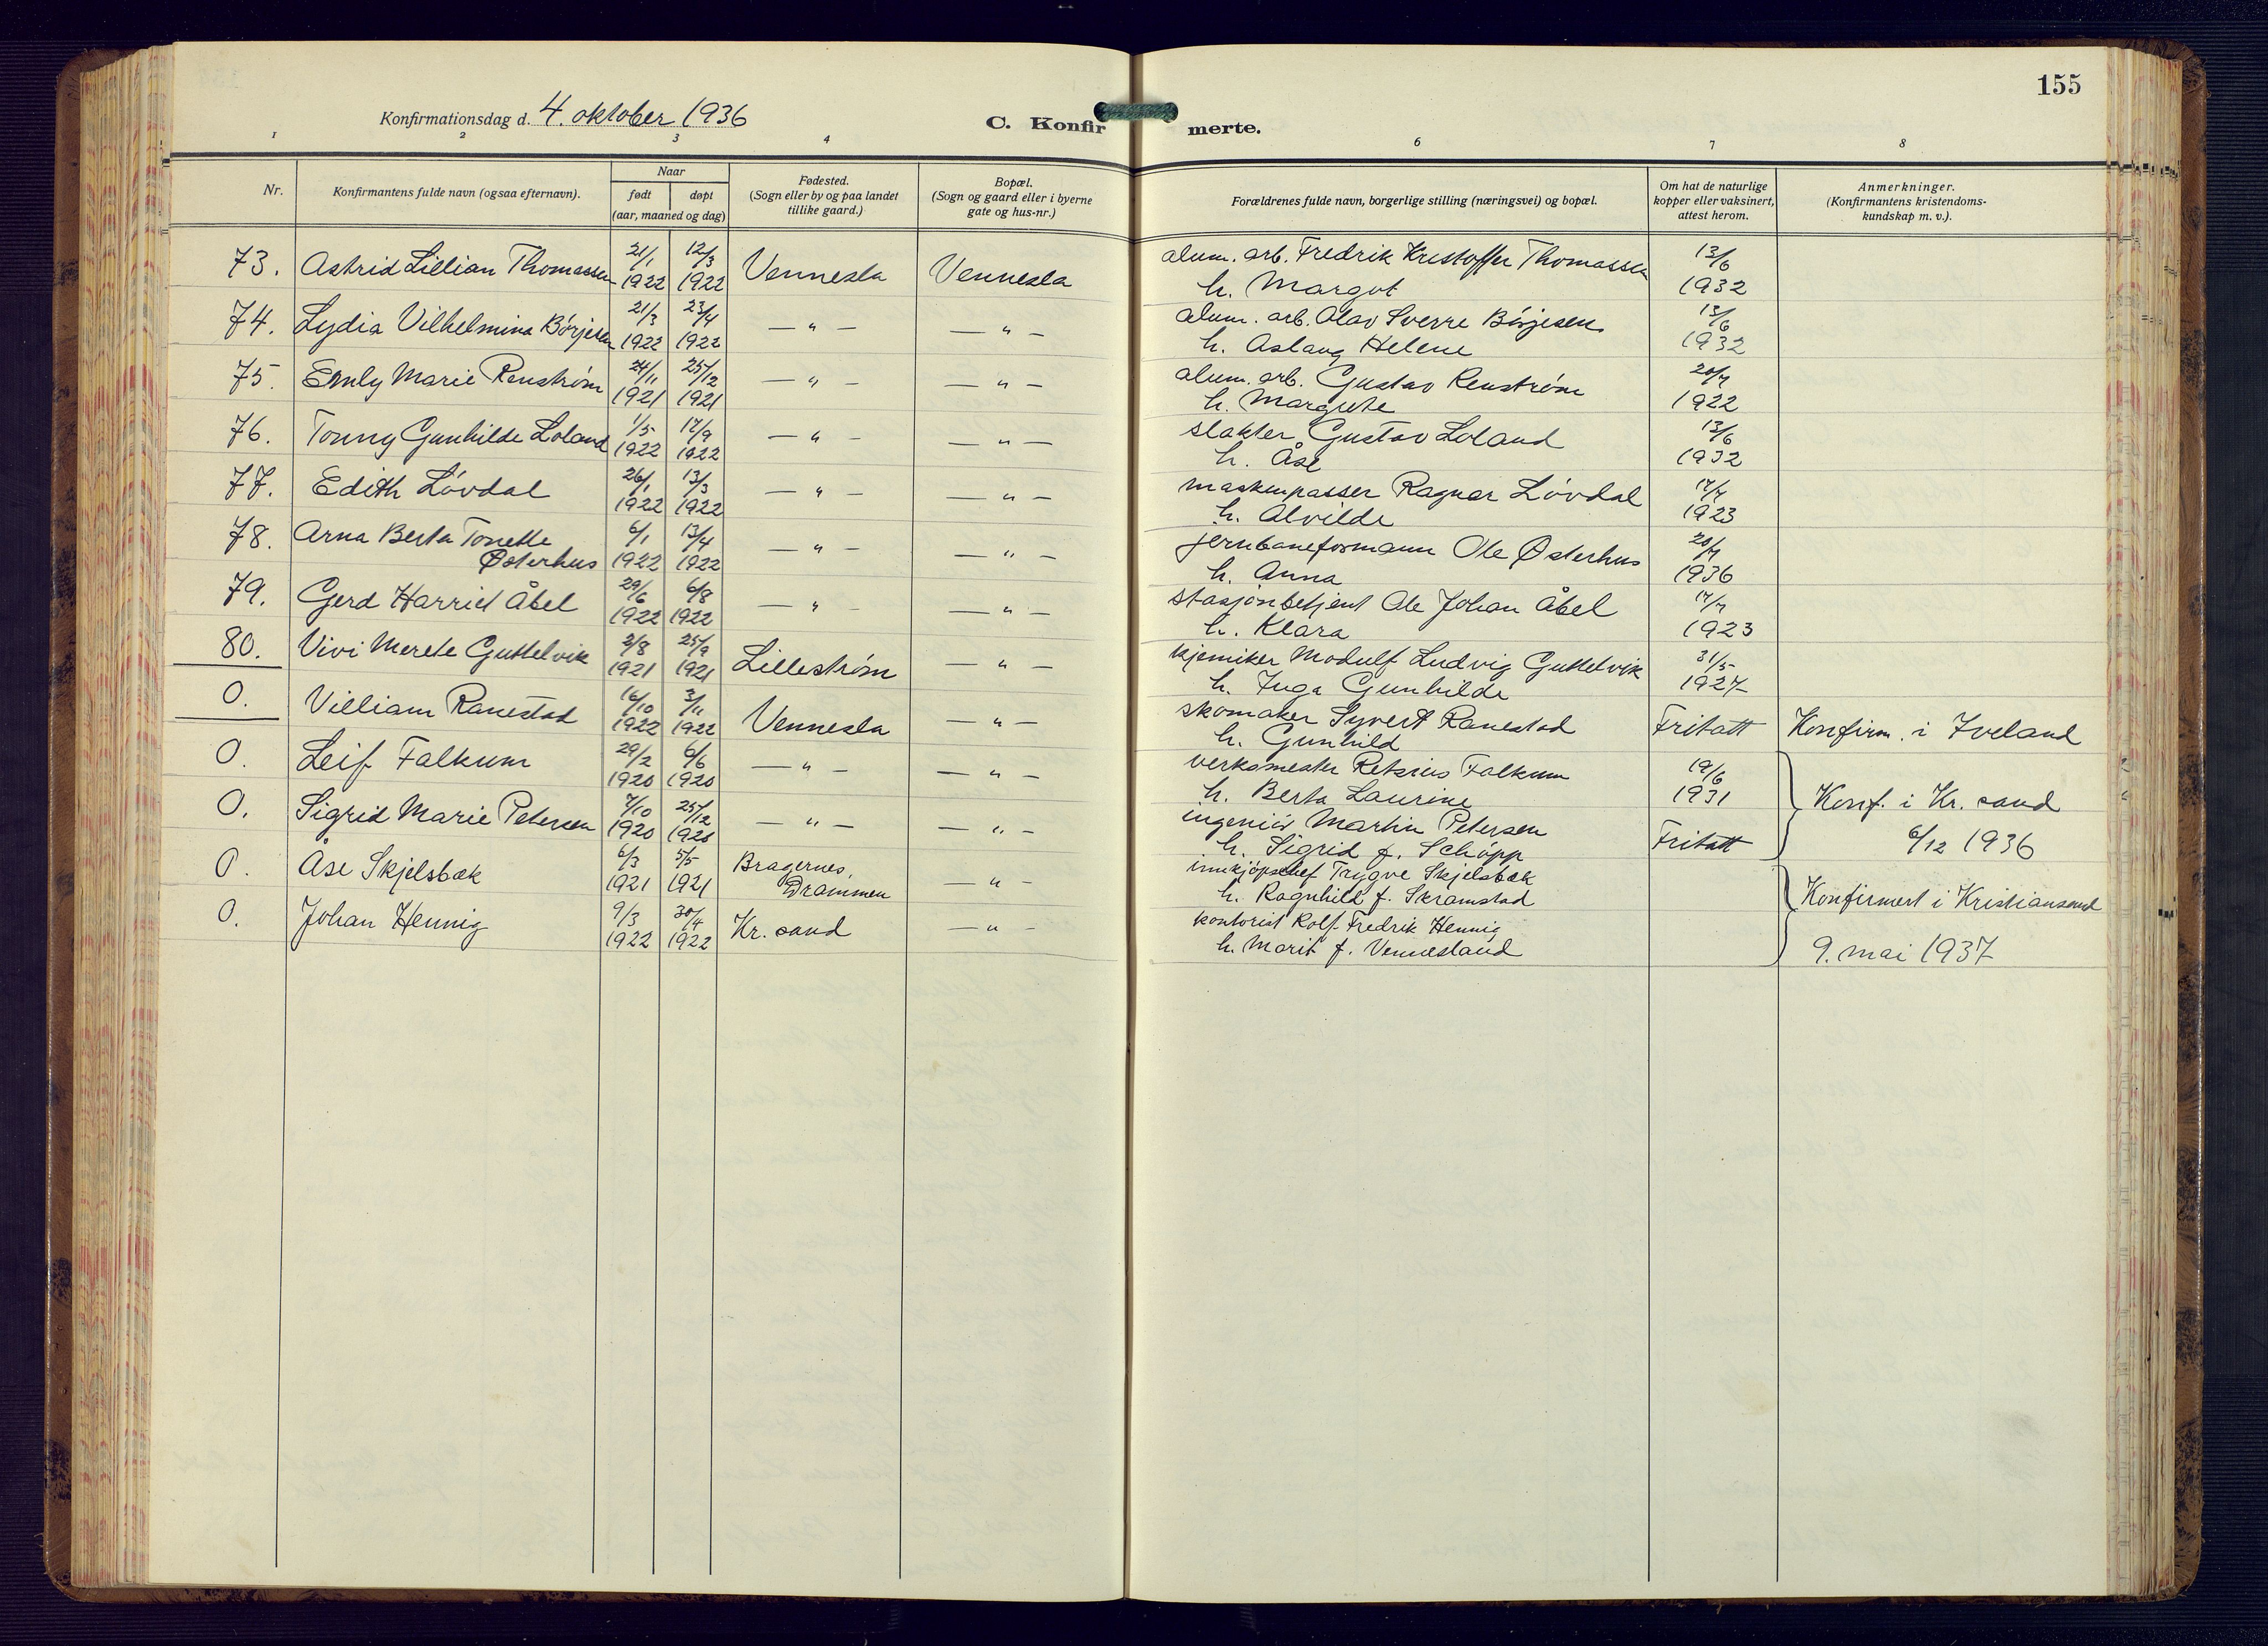 155
Konfirmationsdag d. 4. oktober 1936
C. Konfir merte.
1 2 3 4 6 7 8
Nr.
Konfirmantens fulde navn (ogsaa efternavn).
Naar
født døpt
(aar, maaned og dag)
Fødested.
(Sogn eller by og paa landet
tillike gaard.)
Bopæl.
(Sogn og gaard eller i byerne
gate og hus-nr.)
Forældrenes fulde navn, borgerlige stilling (næringsvei) og bopæl.
Om hat de naturlige
kopper eller vaksinert,
attest herom.
Anmerkninger.
(Konfirmantens kristendoms-
kundskap m. v.).
73. Astrid Lillian Thomassen 21/1 1922 12/3 1922 Vennesla Vennesla alum. arb. Fredrik Kristoffer Thomassen 13/6 1932
h. Margot
74. Lydia Vilhelmina Börjesen 21/3 1922 23/4 1922 — " — — " — alum. arb. Olav Sverre Börjesen 13/6 1932
h. Aslaug Helene
75. Emly Marie Renström 24/11 1921 25/12 1921 — " — — " — alum. arb. Gustav Renström 20/7 1922
h. Margrete
76. Tonny Gunhilde Loland 1/5 1922 17/9 1922 — " — — " — slakter Gustav Loland 13/6 1932
h. Åse
77. Edith Lövdal 26/1 1922 13/3 1922 — " — — " — maskinpasser Ragnar Lövdal 17/7 1923
h. Alvilde
78. Arna Berta Tonette 6/1 1922 13/4 1922 — " — — " — jernbaneformann Ole Østerhus 20/7 1936
Østerhus h. Anna
79. Gerd Harriet Åbel 29/6 1922 6/8 1922 — " — — " — stasjonbetjent Ole Johan Åbel 17/7 1923
h. Klara
80. Vivi Merete Guttelvik 2/8 1921 25/9 1921 Lilleström — " — kjemiker Modulf Ludvig Guttelvik 31/5 1927
h. Inga Gunhilde
0. Villiam Ranestad 16/10 1922 3/11 1922 Vennesla — " — skomaker Syvert Ranestad Fritatt Konfirm. i Iveland
h. Gunhild
0. Leif Falkum 29/2 1920 6/6 1920 — " — — " — verksmester Retsius Falkum 19/6 1931 Konf. i Kr. sand
h. Berta Laurine
0. Sigrid Marie Petersen 7/10 1920 25/12 1920 — " — — " — ingeniör Martin Petersen Fritatt 6/12 1936
h. Sigrid f. Schöpp
0. Åse Skjelsbæk 6/3 1921 5/5 1921 Bragernes, — " — innkjöpschef Trygve Skjelsbæk Konfirmert i Kristiansand
Drammen h. Ragnhild f. Skramstad
0. Johan Hennig 9/3 1922 30/4 1922 Kr. sand — " — kontorist Rolf Fredrik Hennig 9. mai 1937
h. Marit f. Vennesland